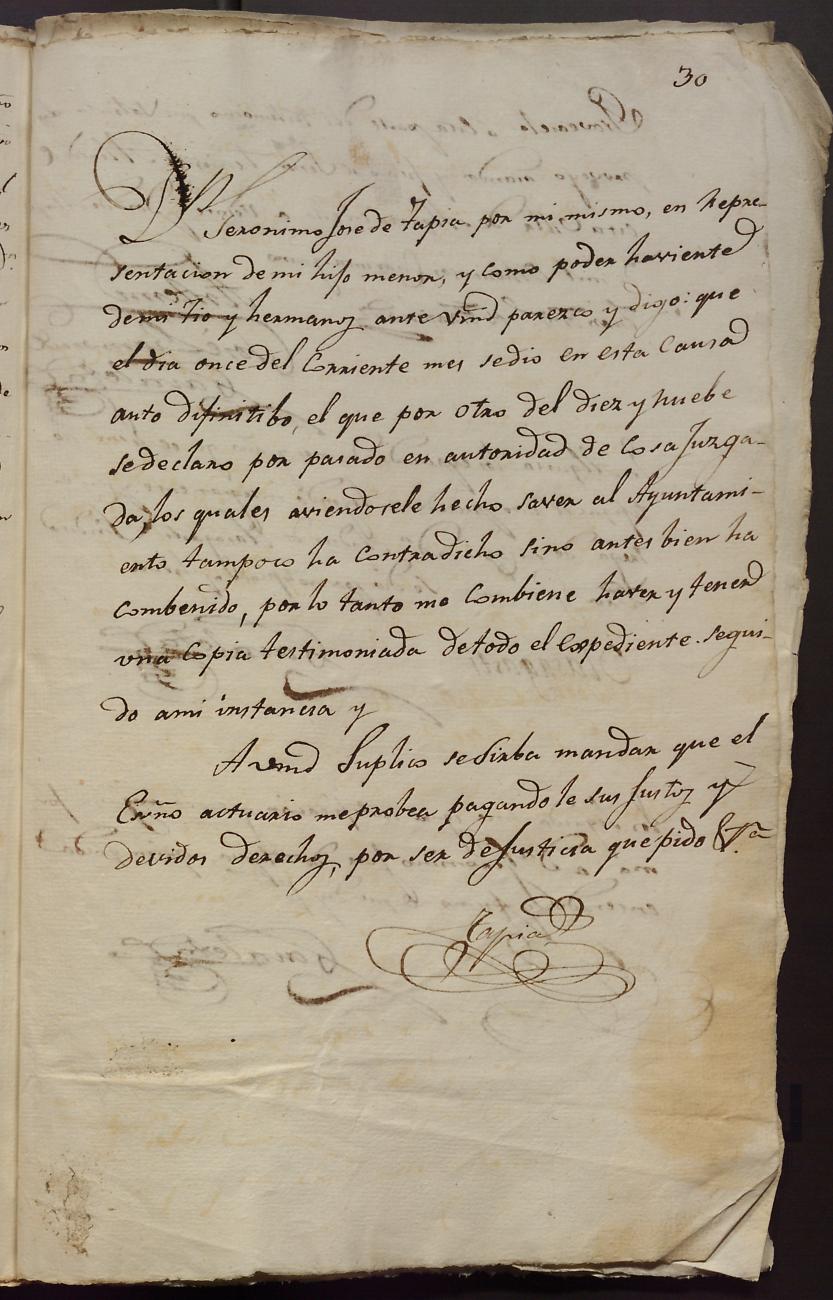 30
Dn Jeronimo Jose de Tapia por mi mismo, en Repre-
sentacion de mi hijo menor, y como poder haviente
de mi Tio y hermanoz ante Vmd parezco y digo: que
el dia once del Corriente mes se dio en esta Causa
auto difinitibo, el que por otro del diez y nuebe
se declaro por pasado en autoridad de Cosa Juzga-
da, los quales aviendosele hecho saver al Ayuntami-
ento tampoco ha Contradicho sino antes bien ha
Combenido, por lo tanto me Combiene haver y tener
una Copia testimoniada de todo el Expediente segui-
do a mi instancia y
A Vmd Suplico se Sirba mandar que el
Esño actuario me probea pagandole sus Justoz y
devidos derechoz, por ser de Justicia que pido &ra
Tapia